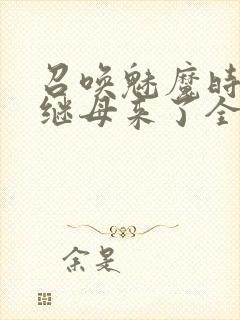 召唤魅魔时
继母来了全
余是